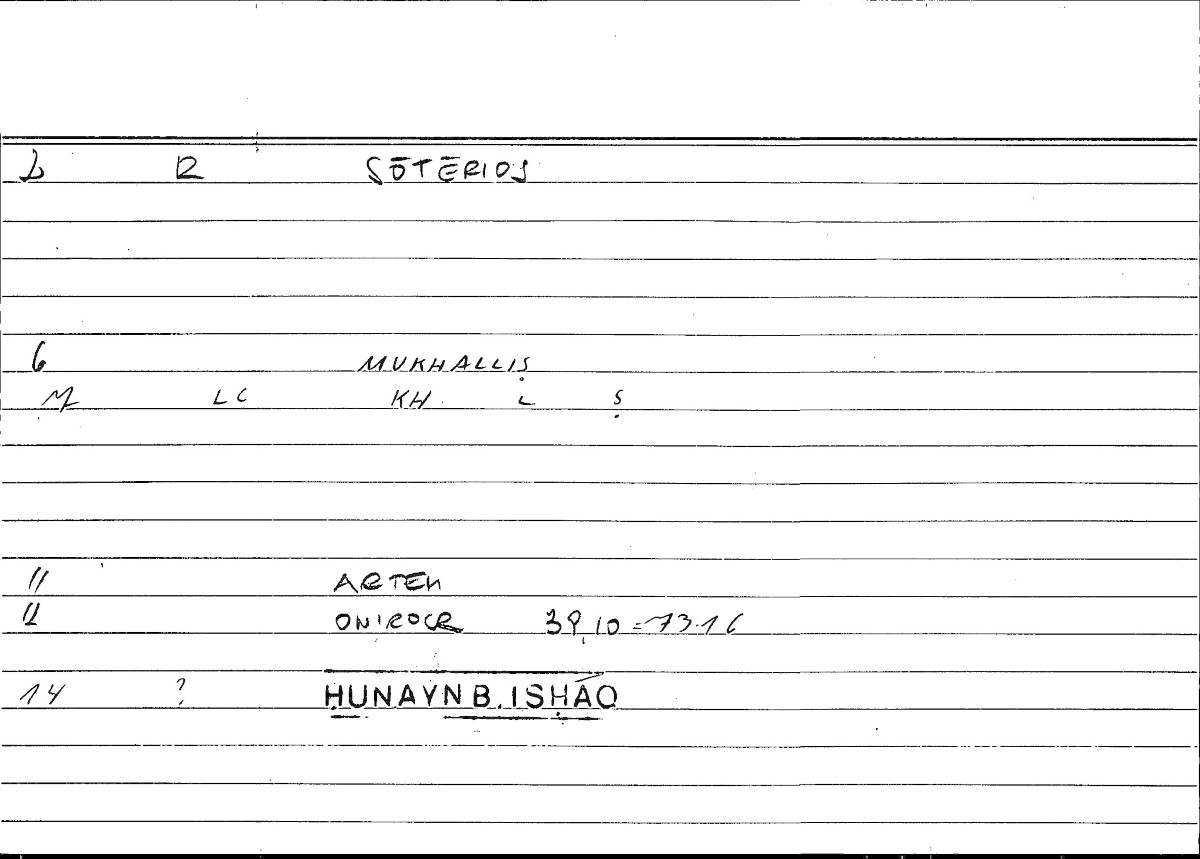 2 R SŌTĒRIOS
6 MUKHALLIṢ
M LC KH L Ṣ
11 ARTEM
12 ONIROCR 39,10 = 73.16
14 ? ḤUNAYN B. ISḤĀQ